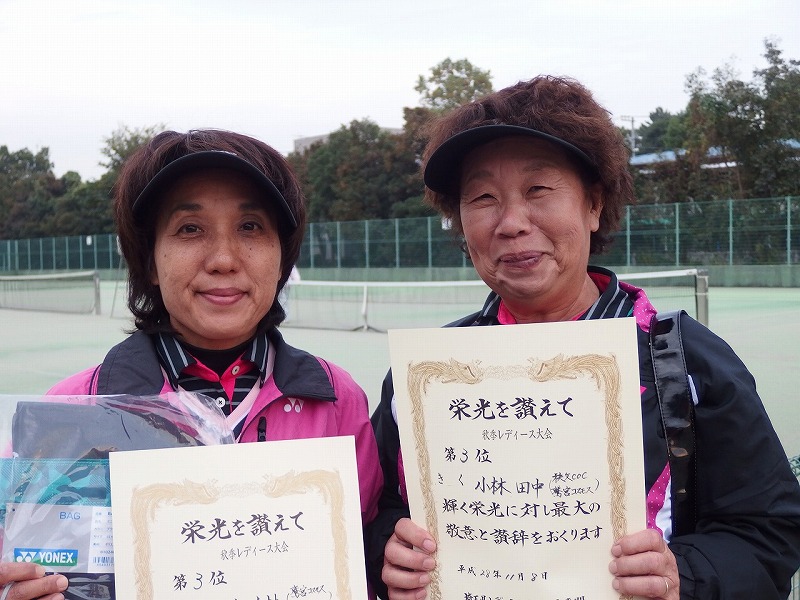 栄光を讃えて
秋季レディース大会
第3位
栄光を讃えて
秋季レディース大会
第3位
きく 小林 田中
輝く栄光に対し最大の
敬意と讃辞をおくります
平成28年11月8日
BAG
YONEX